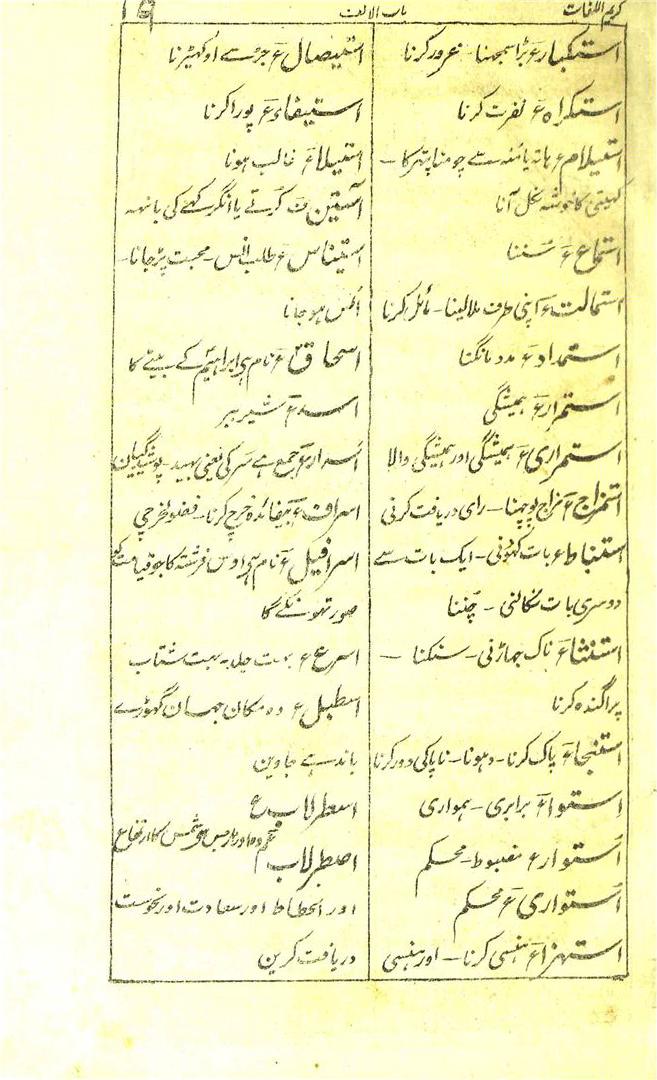 کریم اللغات
باب الالف
استکبار ع بڑا سمجھنا - غرور کرنا
استکراہ ع نفرت کرنا
استیلام ع ہاتھ یا منہ سے چومنا پتھر کا -
کہیتی کا خوشہ نکل آنا
استماع ع سننا
استمالت ع اپنی طرف ملا لینا - مائل کرنا
استمداد ع مدد مانگنا
استمرار ع ہمیشگی
استمراری ع ہمیشگی اور ہمیشگی والا
استمزاج ع مزاج پوچہنا - رای دریافت کرنی
استنباط ع بات کہونی - ایک بات سے
دوسری بات نکالنی - چننا
استنثا ع ناک جہاڑنی - سنکنا -
پراگندہ کرنا
استنجا ع پاک کرنا - دہونا - ناپاکی دور کرنا
استوا ع برابری - ہمواری
استوار ع مضبوط - محکم
استواری ع محکم
استہزا ع ہنسی کرنا - اور ہنسی
استیصال ع جڑ سے اوکہیڑنا
استیفاء ع پورا کرنا
استیلا ع غالب ہونا
آستین ف کرتے یا انگرکہے کی بانہہ
استیناس ع طلب انس - محبت پڑجانا -
انس ہو جانا
اسحاق ع نام ہی ابراہیم کے بیٹے کا
اسد ع شیر ببر
اسرار ع جمع ہے سر کی یعنی بہید - پوشیدگیان
اسراف ع بیفائدہ خرچ کرنا - فضولخرچی
اسرافیل ع نام ہی اوس فرشتہ کا جو قیامت کو
صور پہونکے گا
اسرع ع بہت جلد - بہت شتاب
اسطبل ع وہ مکان جہان گہوڑے
باندہے جاوین
اسطرلاب ع
اصطرلاب شمس کا ارتفاع
اور انحطاط اور سعادت اور نحوست
دریافت کرین